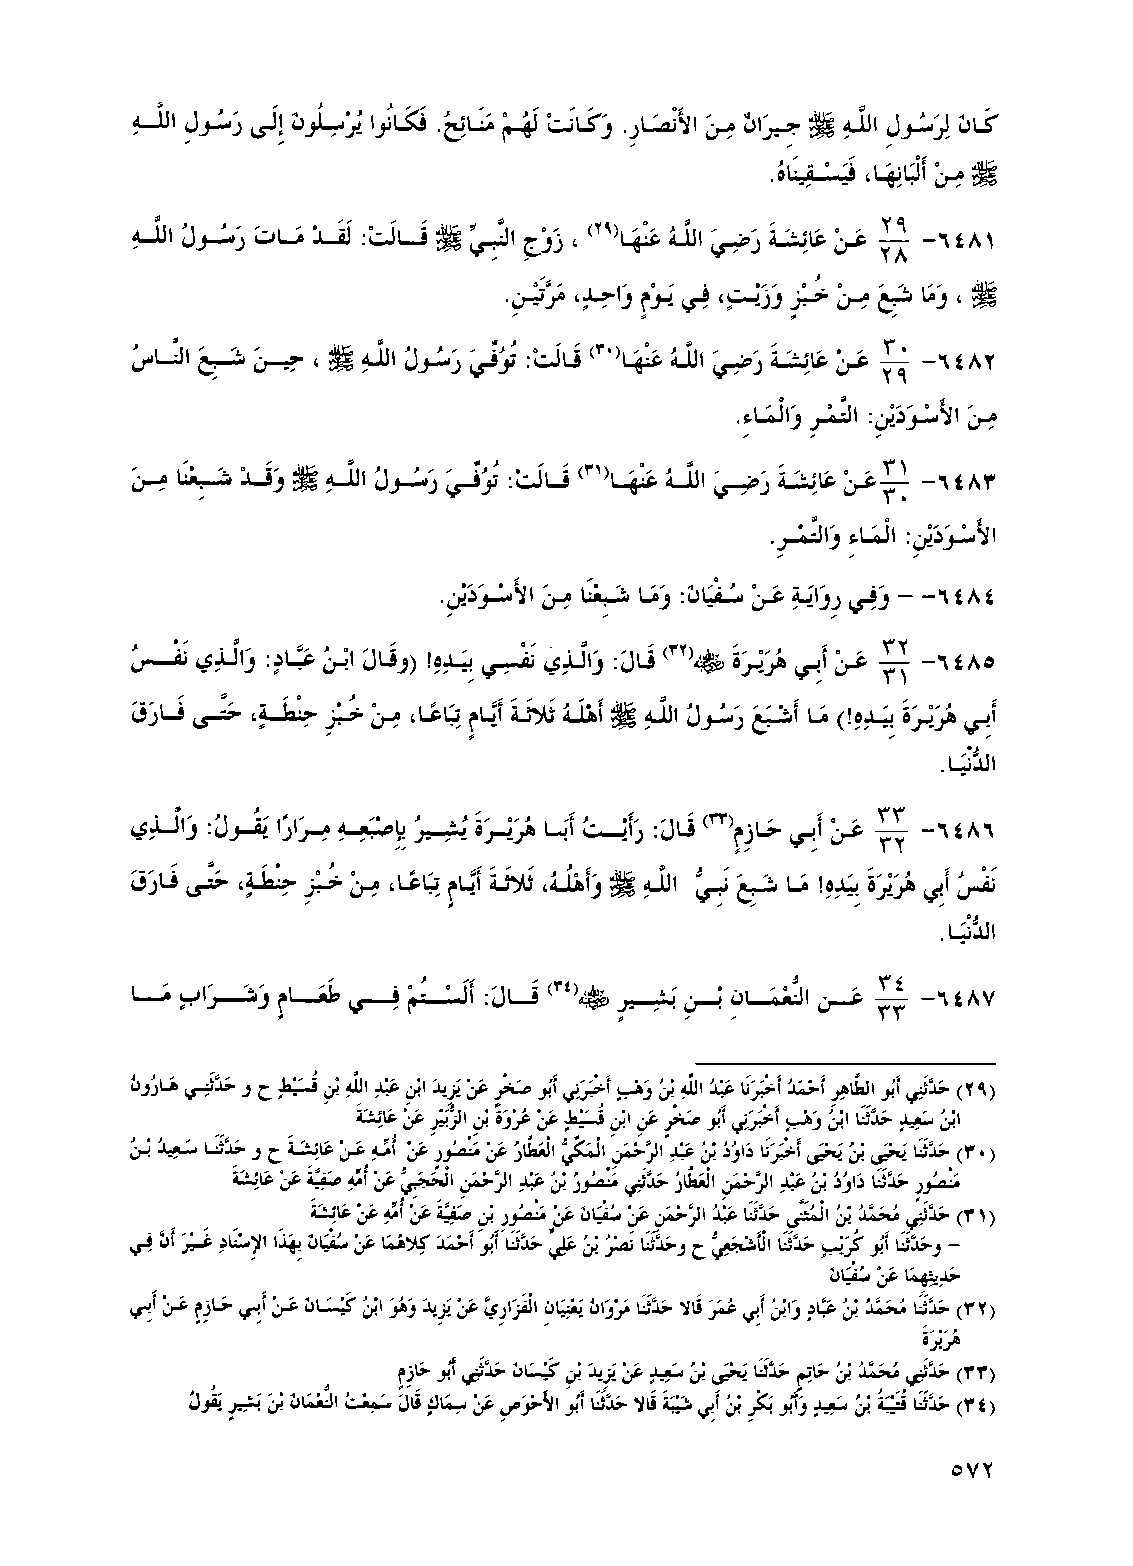 كَانَ لِرَسُولِ اللَّهِ ﷺ جِيرَانٌ مِنَ الأَنْصَارِ. وَكَانَتْ لَهُمْ مَنَائِحُ. فَكَانُوا يُرْسِلُونَ إِلَى رَسُولِ اللَّهِ
ﷺ مِنْ أَلْبَانِهَا، فَيَسْقِينَاهُ.
٦٤٨١- ٢٩/٢٨ عَنْ عَائِشَةَ رَضِيَ اللَّهُ عَنْهَا(٢٩) ، زَوْجِ النَّبِيِّ ﷺ قَالَتْ: لَقَدْ مَاتَ رَسُولُ اللَّهِ
ﷺ ، وَمَا شَبِعَ مِنْ خُبْزٍ وَزَيْتٍ، فِي يَوْمٍ وَاحِدٍ، مَرَّتَيْنِ.
٦٤٨٢- ٣٠/٢٩ عَنْ عَائِشَةَ رَضِيَ اللَّهُ عَنْهَا(٣٠) قَالَتْ: تُوُفِّيَ رَسُولُ اللَّهِ ﷺ ، حِينَ شَبِعَ النَّاسُ
مِنَ الأَسْوَدَيْنِ: التَّمْرِ وَالْمَاءِ.
٦٤٨٣- ٣١/٣٠ عَنْ عَائِشَةَ رَضِيَ اللَّهُ عَنْهَا(٣١) قَالَتْ: تُوُفِّيَ رَسُولُ اللَّهِ ﷺ وَقَدْ شَبِعْنَا مِنَ
الأَسْوَدَيْنِ: الْمَاءِ وَالتَّمْرِ.
٦٤٨٤- – وَفِي رِوَايَةٍ عَنْ سُفْيَانَ: وَمَا شَبِعْنَا مِنَ الأَسْوَدَيْنِ.
٦٤٨٥- ٣٢/٣١ عَنْ أَبِي هُرَيْرَةَ ﷺ(٣٢) قَالَ: وَالَّذِي نَفْسِي بِيَدِهِ! (وقَالَ ابْنُ عَبَّادٍ: وَالَّذِي نَفْسُ
أَبِي هُرَيْرَةَ بِيَدِهِ!) مَا أَشْبَعَ رَسُولُ اللَّهِ ﷺ أَهْلَهُ ثَلاثَةَ أَيَّامٍ تِبَاعًا، مِنْ خُبْزِ حِنْطَةٍ، حَتَّى فَارَقَ
الدُّنْيَا.
٦٤٨٦- ٣٣/٣٢ عَنْ أَبِي حَازِمٍ(٣٣) قَالَ: رَأَيْتُ أَبَا هُرَيْرَةَ يُشِيرُ بِإِصْبَعِهِ مِرَارًا يَقُولُ: وَالَّذِي
نَفْسُ أَبِي هُرَيْرَةَ بِيَدِهِ! مَا شَبِعَ نَبِيُّ اللَّهِ ﷺ وَأَهْلُهُ، ثَلاثَةَ أَيَّامٍ تِبَاعًا، مِنْ خُبْزِ حِنْطَةٍ، حَتَّى فَارَقَ
الدُّنْيَا.
٦٤٨٧- ٣٤/٣٣ عَنِ النُّعْمَانِ بْنِ بَشِيرٍ ﷺ(٣٤) قَالَ: أَلَسْتُمْ فِي طَعَامٍ وَشَرَابٍ مَا
(٢٩) حَدَّثَنِي أَبُو الطَّاهِرِ أَحْمَدُ أَخْبَرَنَا عَبْدُ اللَّهِ بْنُ وَهْبٍ أَخْبَرَنِي أَبُو صَخْرٍ عَنْ يَزِيدَ ابْنِ عَبْدِ اللَّهِ بْنِ قُسَيْطٍ ح و حَدَّثَنِي هَارُونُ
ابْنُ سَعِيدٍ حَدَّثَنَا ابْنُ وَهْبٍ أَخْبَرَنِي أَبُو صَخْرٍ عَنِ ابْنِ قُسَيْطٍ عَنْ عُرْوَةَ بْنِ الزُّبَيْرِ عَنْ عَائِشَةَ
(٣٠) حَدَّثَنَا يَحْيَى بْنُ يَحْيَى أَخْبَرَنَا دَاوُدُ بْنُ عَبْدِ الرَّحْمَنِ الْمَكِّيُّ الْعَطَّارُ عَنْ مَنْصُورٍ عَنْ أُمِّهِ عَنْ عَائِشَةَ ح و حَدَّثَنَا سَعِيدُ بْنُ
مَنْصُورٍ حَدَّثَنَا دَاوُدُ بْنُ عَبْدِ الرَّحْمَنِ الْعَطَّارُ حَدَّثَنِي مَنْصُورُ بْنُ عَبْدِ الرَّحْمَنِ الْحَجَبِيُّ عَنْ أُمِّهِ صَفِيَّةَ عَنْ عَائِشَةَ
(٣١) حَدَّثَنِي مُحَمَّدُ بْنُ الْمُثَنَّى حَدَّثَنَا عَبْدُ الرَّحْمَنِ عَنْ سُفْيَانَ عَنْ مَنْصُورِ بْنِ صَفِيَّةَ عَنْ أُمِّهِ عَنْ عَائِشَةَ
– وحَدَّثَنَا أَبُو كُرَيْبٍ حَدَّثَنَا الْأَشْجَعِيُّ ح وحَدَّثَنَا نَصْرُ بْنُ عَلِيٍّ حَدَّثَنَا أَبُو أَحْمَدَ كِلاهُمَا عَنْ سُفْيَانَ بِهَذَا الإِسْنَادِ غَيْرَ أَنَّ فِي
حَدِيثِهِمَا عَنْ سُفْيَانَ
(٣٢) حَدَّثَنَا مُحَمَّدُ بْنُ عَبَّادٍ وَابْنُ أَبِي عُمَرَ قَالا حَدَّثَنَا مَرْوَانُ يَعْنِيَانِ الْفَزَارِيَّ عَنْ يَزِيدَ وَهُوَ ابْنُ كَيْسَانَ عَنْ أَبِي حَازِمٍ عَنْ أَبِي
هُرَيْرَةَ
(٣٣) حَدَّثَنِي مُحَمَّدُ بْنُ حَاتِمٍ حَدَّثَنَا يَحْيَى بْنُ سَعِيدٍ عَنْ يَزِيدَ بْنِ كَيْسَانَ حَدَّثَنِي أَبُو حَازِمٍ
(٣٤) حَدَّثَنَا قُتَيْبَةُ بْنُ سَعِيدٍ وَأَبُو بَكْرِ بْنُ أَبِي شَيْبَةَ قَالا حَدَّثَنَا أَبُو الأَحْوَصِ عَنْ سِمَاكٍ قَالَ سَمِعْتُ النُّعْمَانَ بْنَ بَشِيرٍ يَقُولُ
٥٧٢